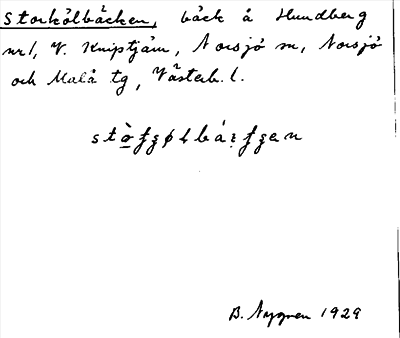 Storkölbäcken, bäck å Hundberg
nr1, V. Kniptjäm, Norsjö sn, Norsjö
och Malå tg, Västerb. l.
B. Nygren 1929